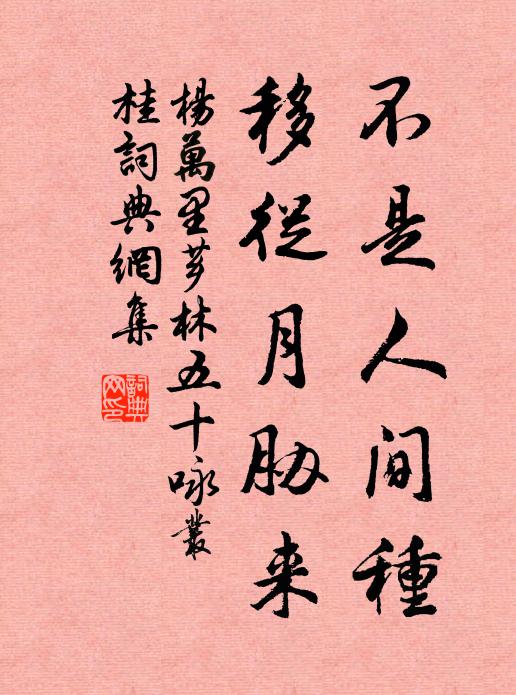 不是人间種
移從月胁来
楊萬里芗林五十咏叢
桂詞典網集
詞典网印